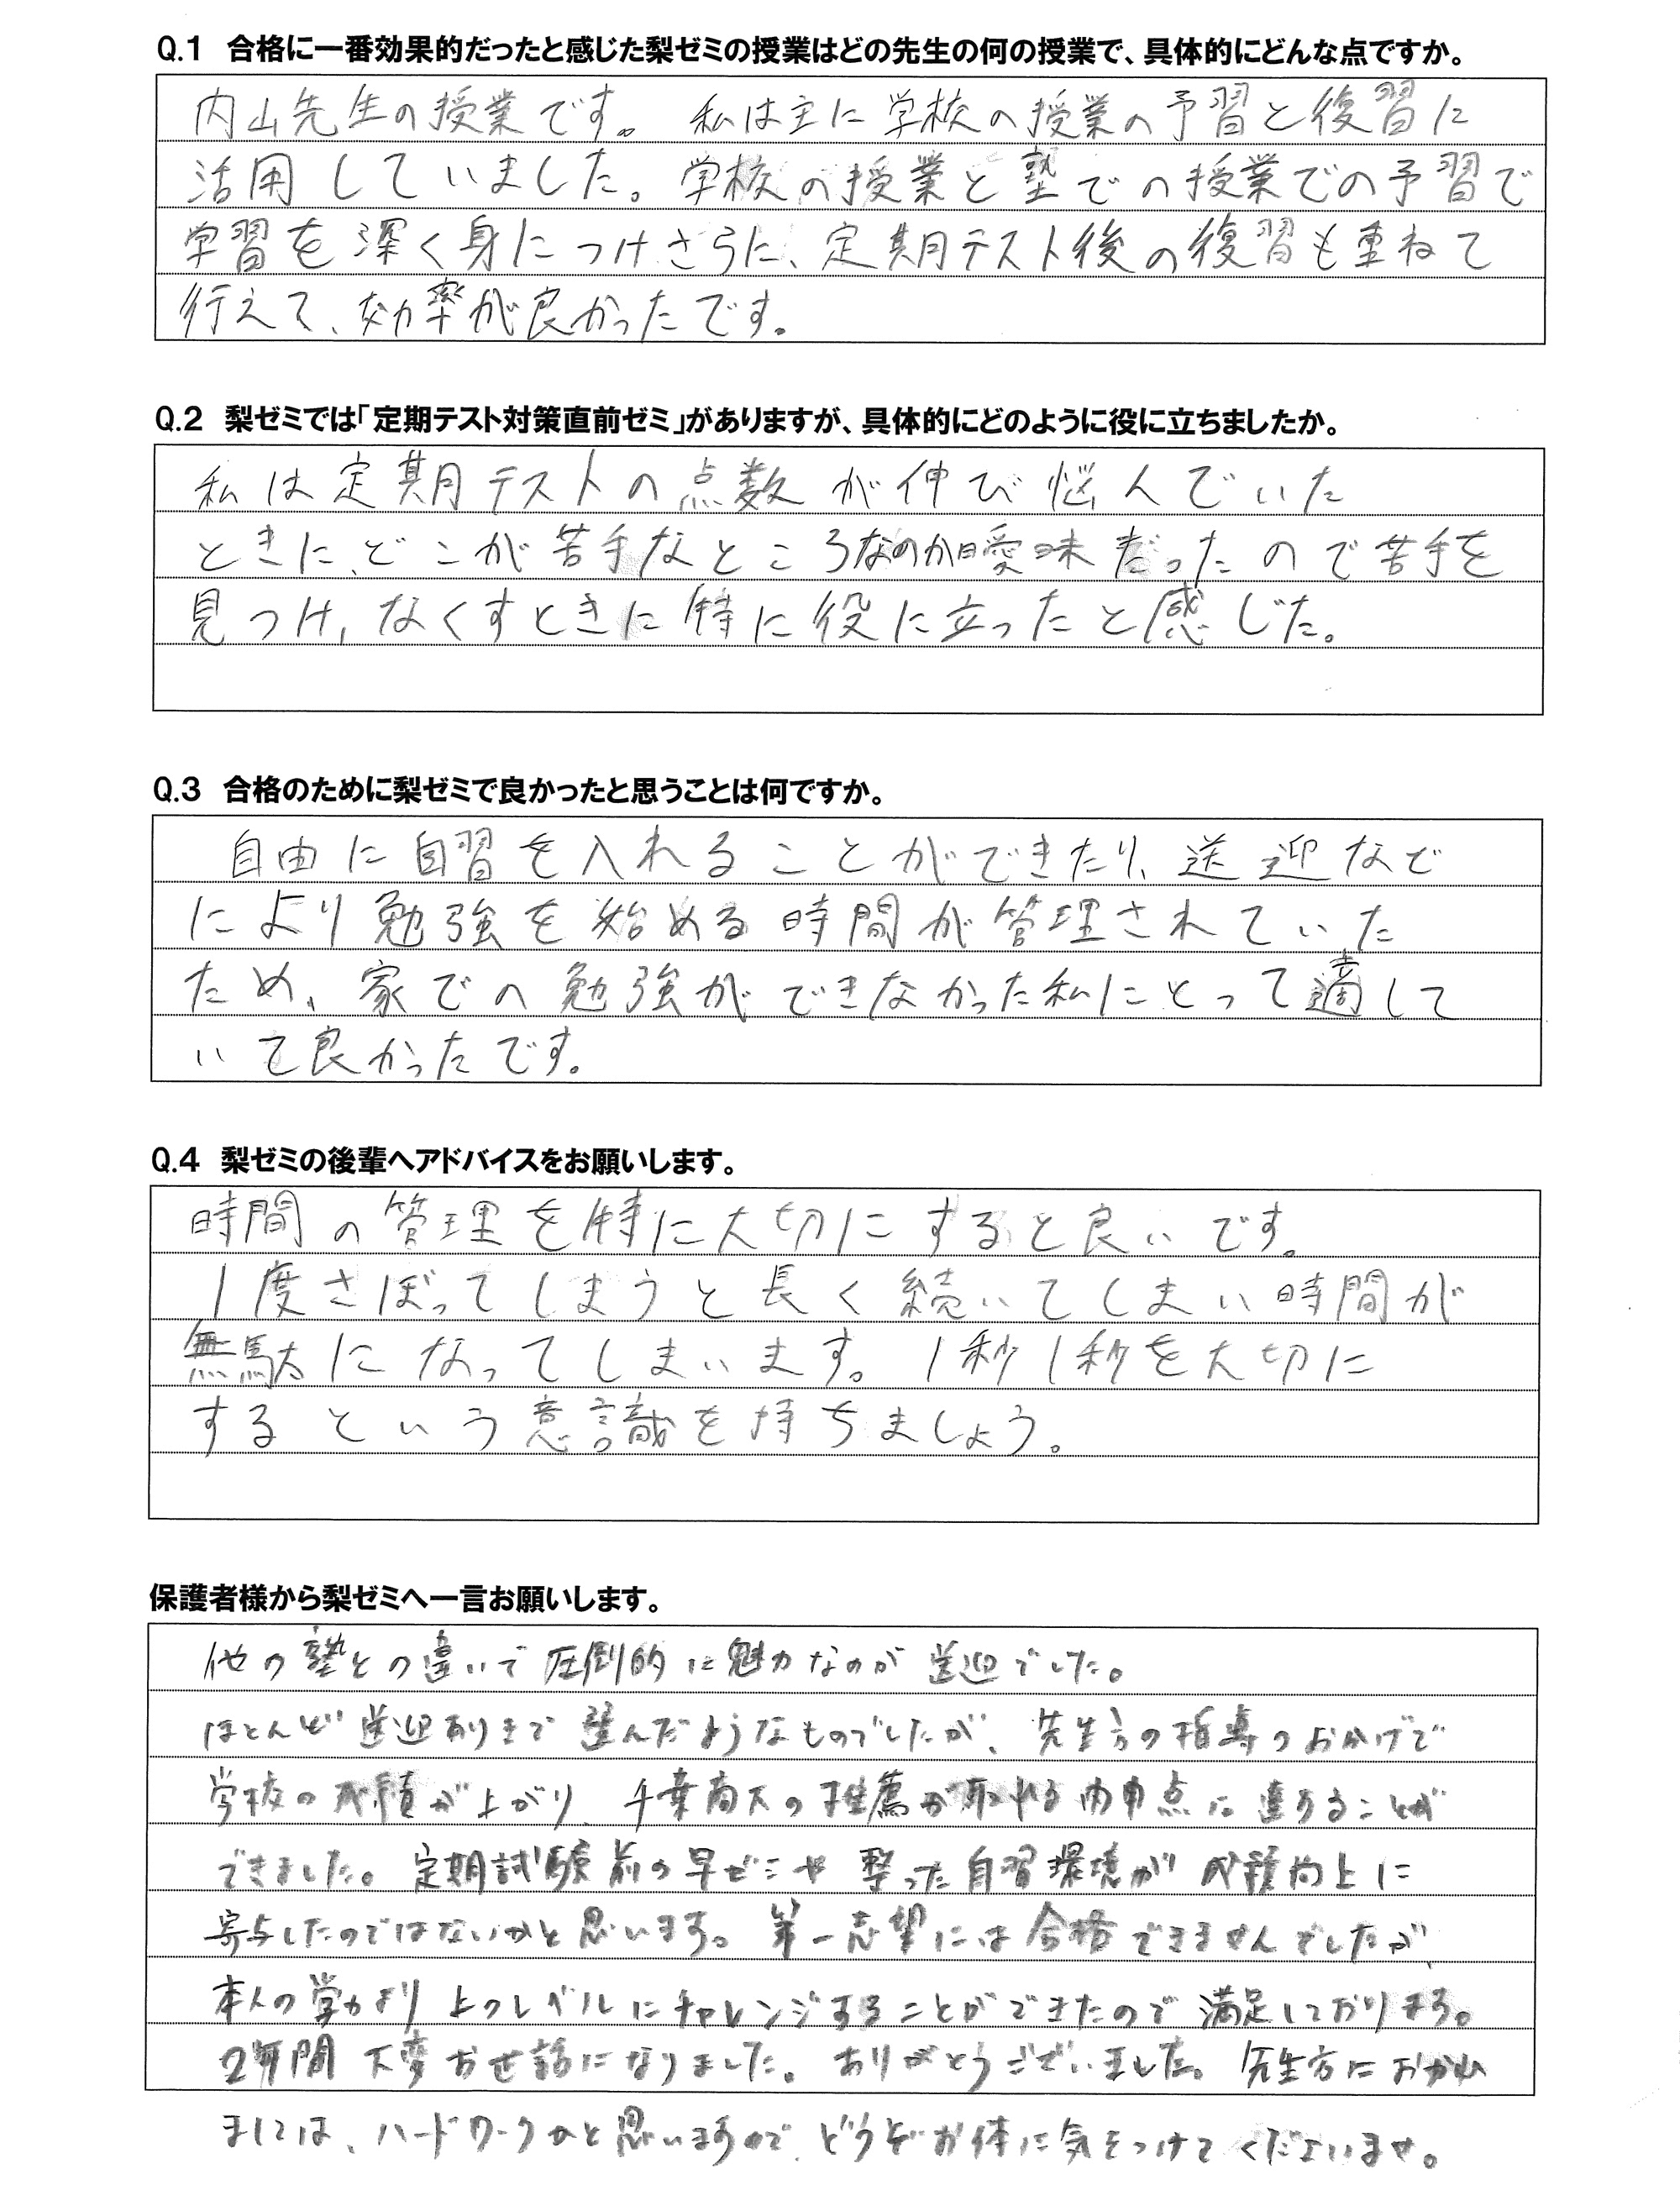 Q.1 合格に一番効果的だったと感じた梨ゼミの授業はどの先生の何の授業で、具体的にどんな点ですか。
内山先生の授業です。私は主に学校の授業の予習と復習に
活用していました。学校の授業と塾での授業での予習で
学習を深く身につけさらに、定期テスト後の復習も重ねて
行えて、効率が良かったです。
Q.2 梨ゼミでは「定期テスト対策直前ゼミ」がありますが、具体的にどのように役に立ちましたか。
私は定期テストの点数が伸び悩んでいた
ときに、どこが苦手なところなのか曖昧だったので苦手を
見つけ、なくすときに特に役に立ったと感じた。
Q.3 合格のために梨ゼミで良かったと思うことは何ですか。
自由に自習を入れることができたり、送迎など
により勉強を始める時間が管理されていた
ため、家での勉強ができなかった私にとって適して
いて良かったです。
Q.4 梨ゼミの後輩へアドバイスをお願いします。
時間の管理を特に大切にすると良いです。
1度さぼってしまうと長く続いてしまい時間が
無駄になってしまいます。1秒1秒を大切に
するという意識を持ちましょう。
保護者様から梨ゼミへ一言お願いします。
他の塾との違いで圧倒的に魅力なのが送迎でした。
ほとんど送迎ありきで選んだようなものでしたが、先生方の指導のおかげで
学校の成績が上がり、千葉商大の推薦が取れる内申点に達することが
できました。定期試験前の早ゼミや整った自習環境が成績向上に
寄与したのではないかと思います。第一志望には合格できませんでしたが
本人の学力より上のレベルにチャレンジすることができたので満足しております。
2年間大変お世話になりました。ありがとうございました。先生方におかれ
ましては、ハードワークかと思いますので、どうぞお体に気をつけてくださいませ。